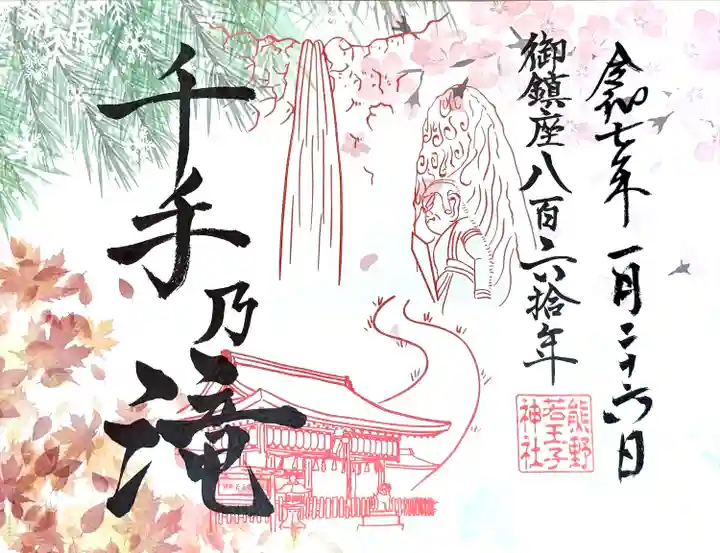 令和七年 一月二十六日
御鎮座八百六拾年
熊野
若王子
神社
千手乃滝